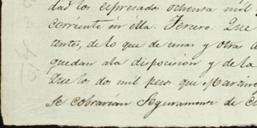 dad los espresados ochenta mil
corriente en ella. Tercero. Que
tanto, de lo que de unas y otras
quedan ala disposicion y de la
Que los dos mil pesos que Mariano
se cobrarian Seguramente de